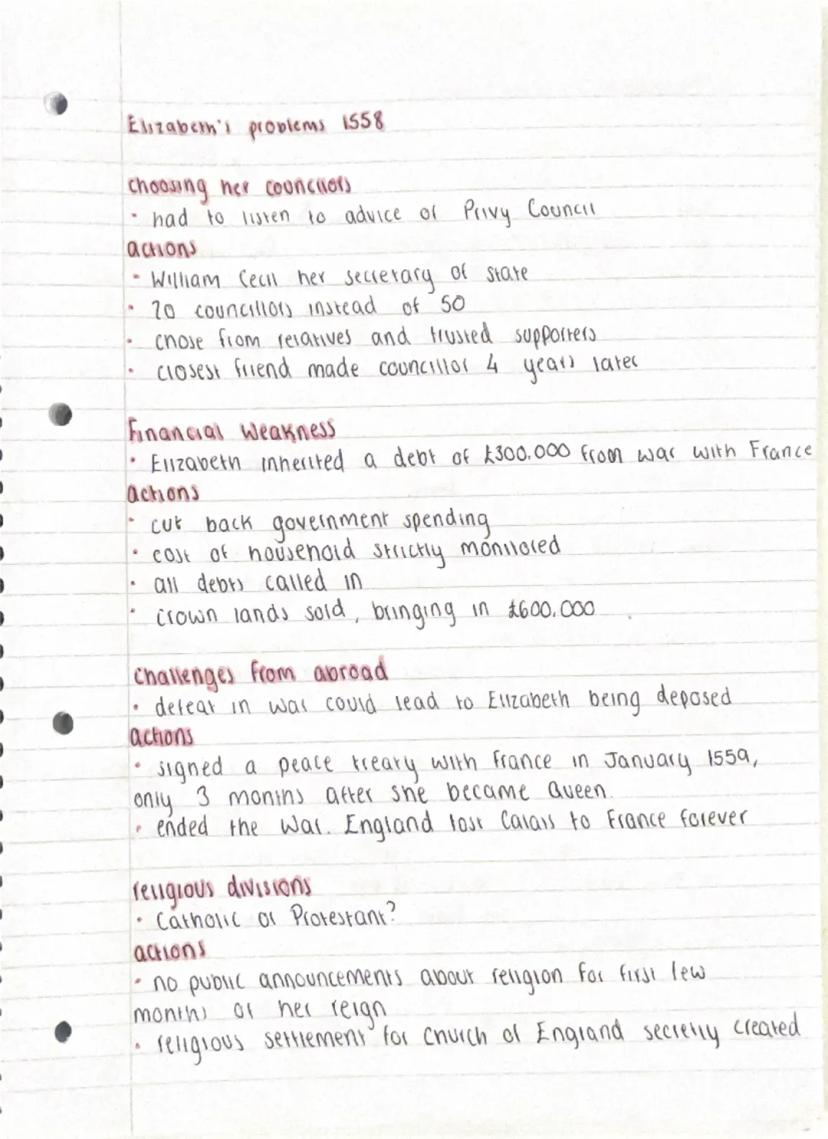 Elizabeth's problems 1558
choosing her councillors
• had to listen to advice of Privy Council
actions
• William Cecil her secretary of state
• 20 councillors instead of 50
• chose from relatives and trusted supporters
• closest friend made councillor 4 years later
Financial weakness
• Elizabeth inherited a debt of £300.000 from war with France
actions
• cut back government spending
• cost of household strictly monitored
• all debts called in
• crown lands sold, bringing in £600.000
Challenges from abroad
• defeat in war could lead to Elizabeth being deposed
actions
• signed a peace treaty with France in January 1559,
only 3 months after she became Queen.
• ended the war. England lost Calais to France forever
religious divisions
• Catholic or Protestant?
actions
• no public announcements about religion for first few
months of her reign
• religious settlement for Church of England secretly created